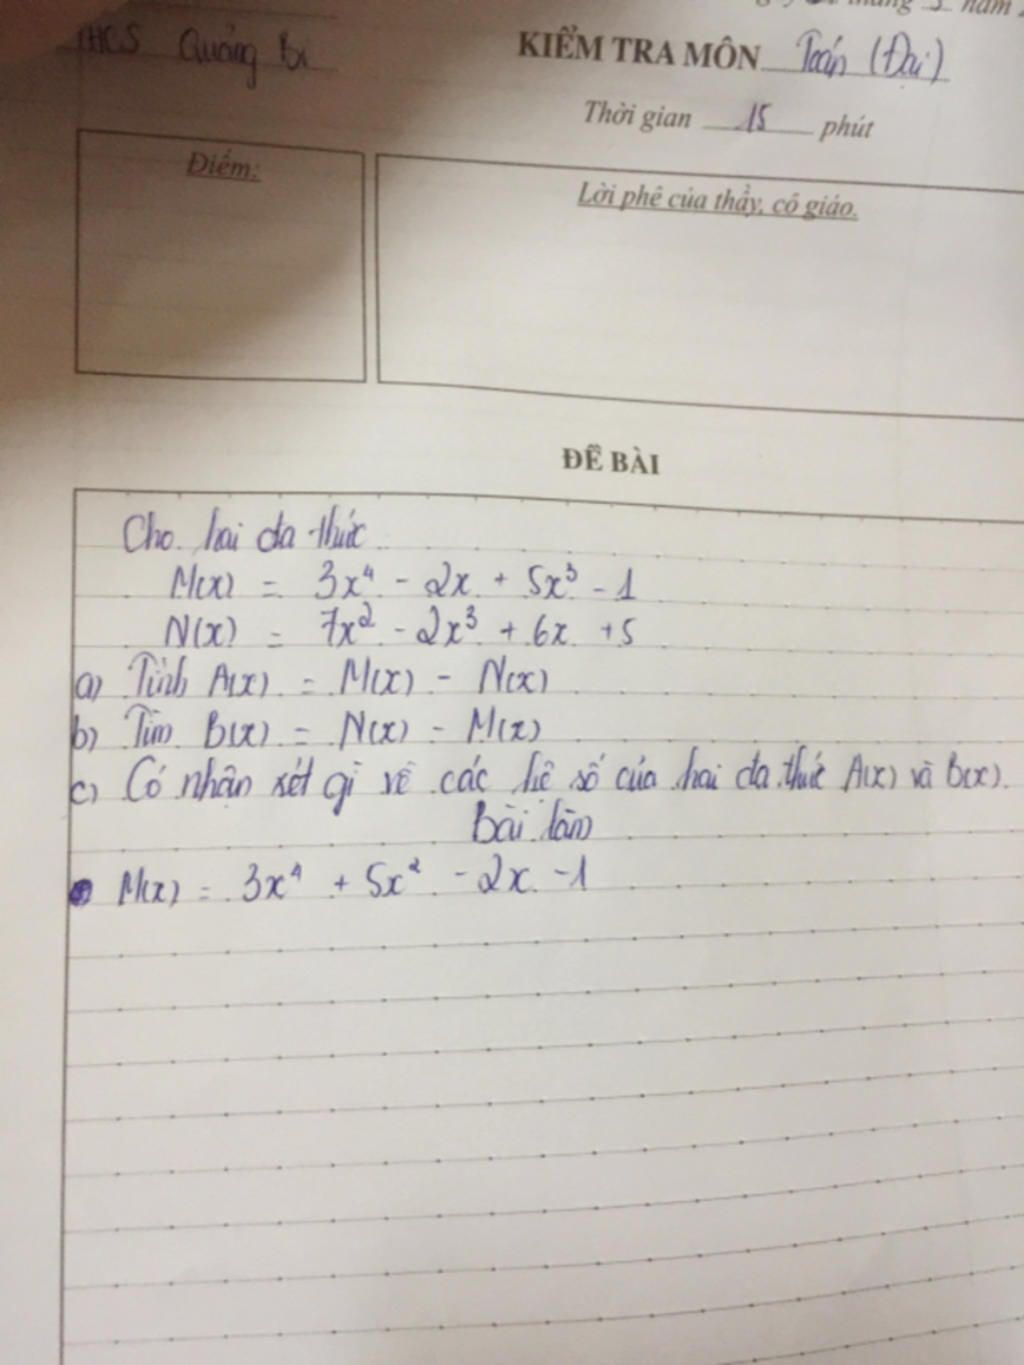 THCS Quảng Bị
KIỂM TRA MÔN Toán (Đại)
Thời gian 15 phút
Điểm:
Lời phê của thầy, cô giáo.
ĐỀ BÀI
Cho hai đa thức
M(x) = 3x⁴ - 2x + 5x³ - 1
N(x) = 7x² - 2x³ + 6x + 5
a) Tính A(x) = M(x) - N(x)
b) Tìm B(x) = N(x) - M(x)
c) Có nhận xét gì về các hệ số của hai đa thức A(x) và B(x).
Bài làm
M(x) = 3x⁴ + 5x² - 2x - 1